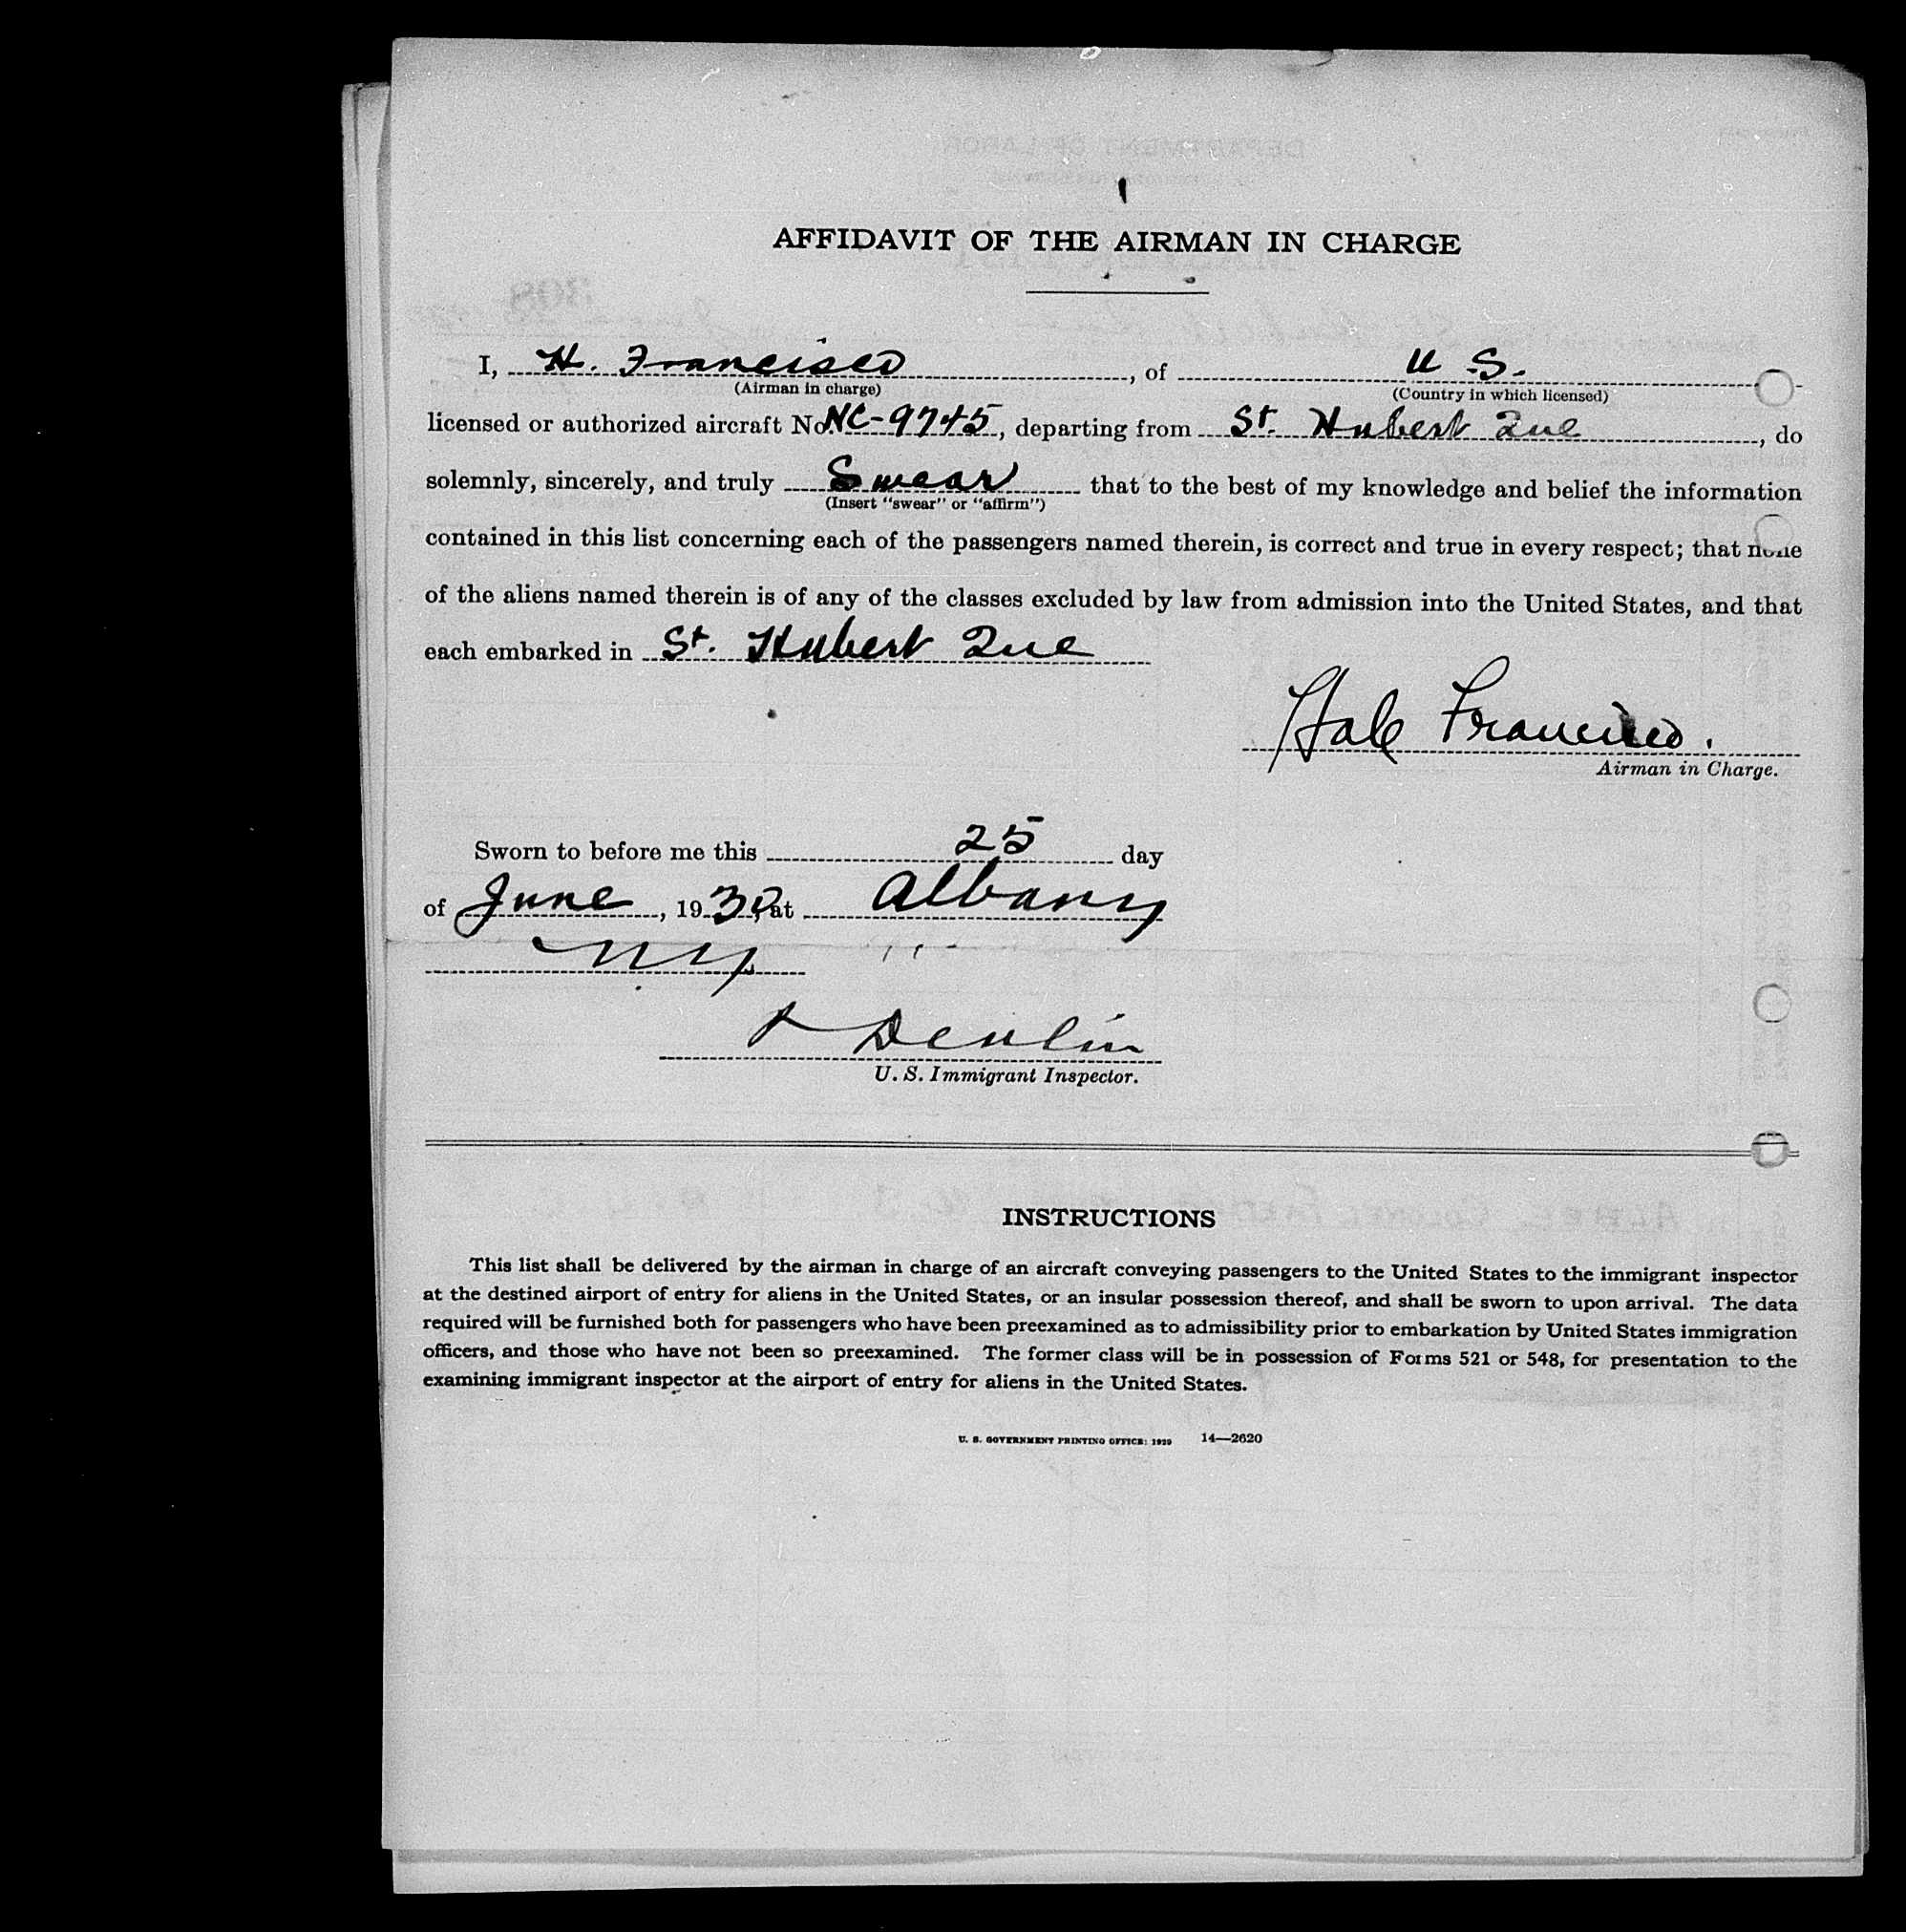 AFFIDAVIT OF THE AIRMAN IN CHARGE
I, H. Francisco, of U S.
(Airman in charge) (Country in which licensed)
licensed or authorized aircraft No. NC-9745, departing from St. Hubert Que, do
solemnly, sincerely, and truly Swear that to the best of my knowledge and belief the information
(Insert "swear" or "affirm")
contained in this list concerning each of the passengers named therein, is correct and true in every respect; that none
of the aliens named therein is of any of the classes excluded by law from admission into the United States, and that
each embarked in St. Hubert Que
Hale Francisco.
Airman in Charge.
Sworn to before me this 25 day
of June, 1930, at Albany
NY
Devlin
U. S. Immigrant Inspector.
INSTRUCTIONS
This list shall be delivered by the airman in charge of an aircraft conveying passengers to the United States to the immigrant inspector
at the destined airport of entry for aliens in the United States, or an insular possession thereof, and shall be sworn to upon arrival. The data
required will be furnished both for passengers who have been preexamined as to admissibility prior to embarkation by United States immigration
officers, and those who have not been so preexamined. The former class will be in possession of Forms 521 or 548, for presentation to the
examining immigrant inspector at the airport of entry for aliens in the United States.
U. S. GOVERNMENT PRINTING OFFICE: 1929 14—2620